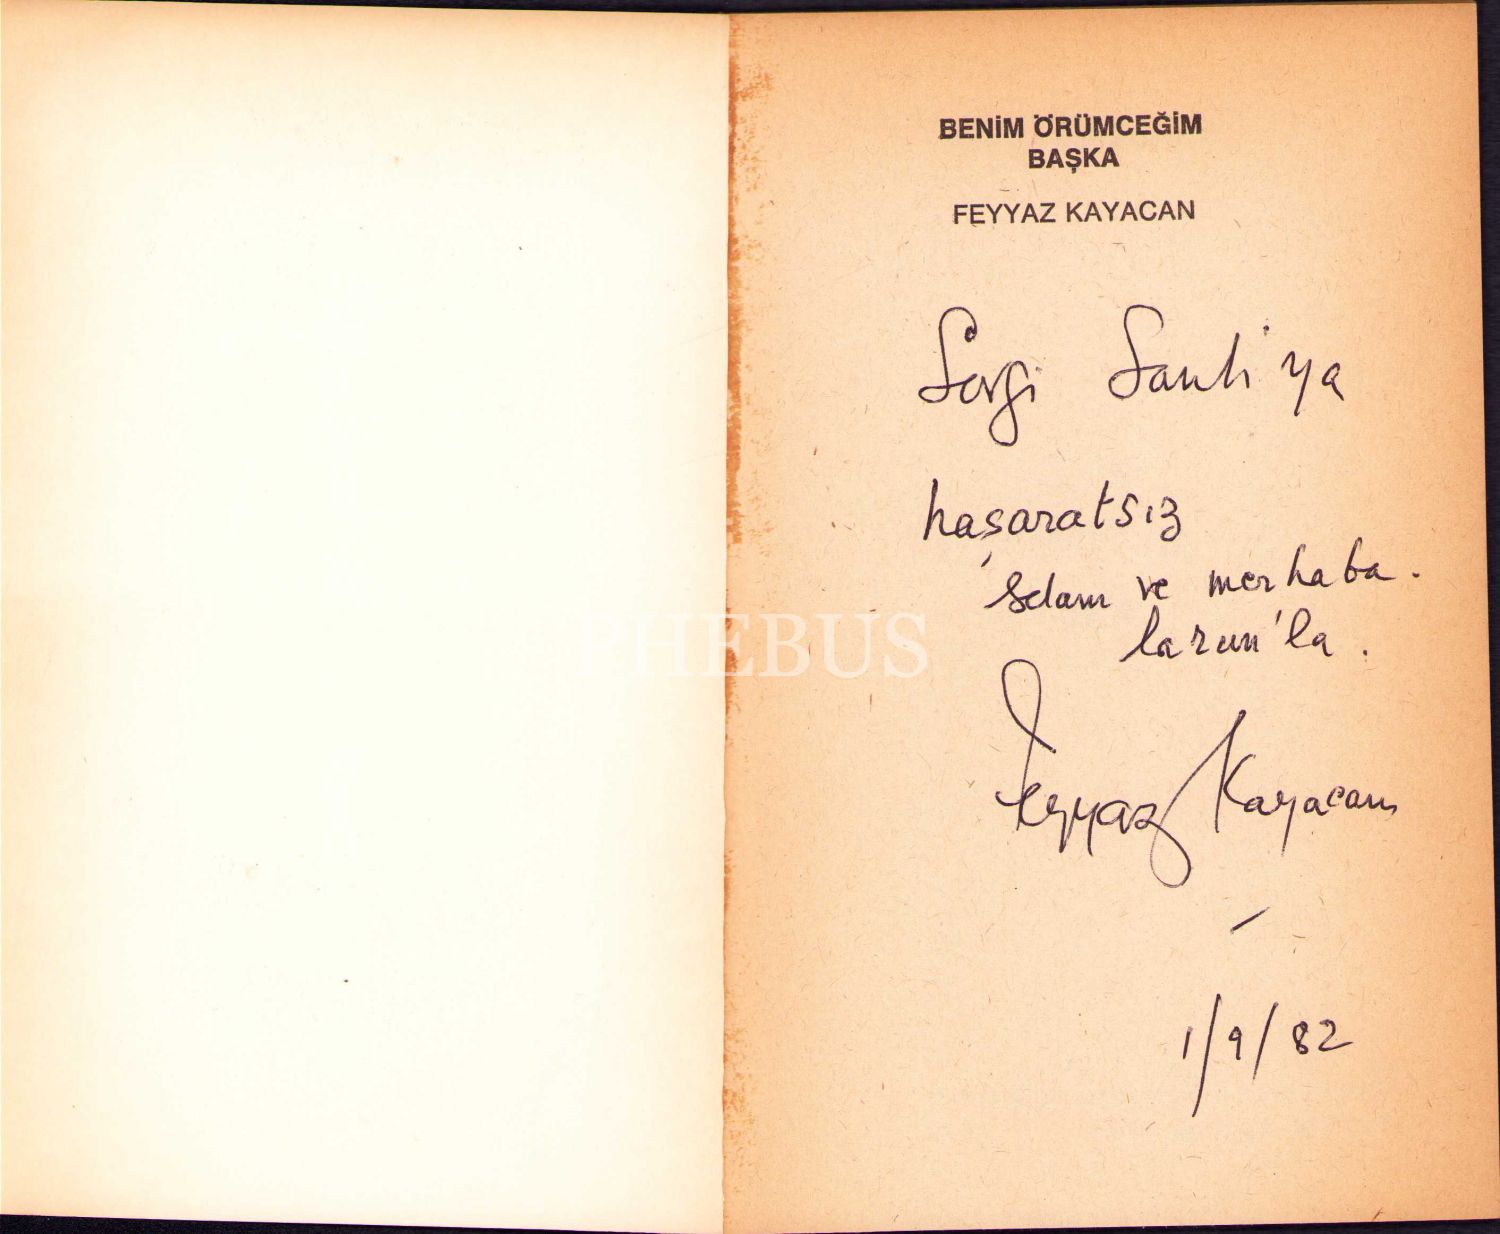 BENİM ÖRÜMCEĞİM
BAŞKA
FEYYAZ KAYACAN
Sevgi Sanlı'ya
haşaratsız
selam ve merhaba.
larım'la.
Feyyaz Kayacan
1/9/82
PHEBUS